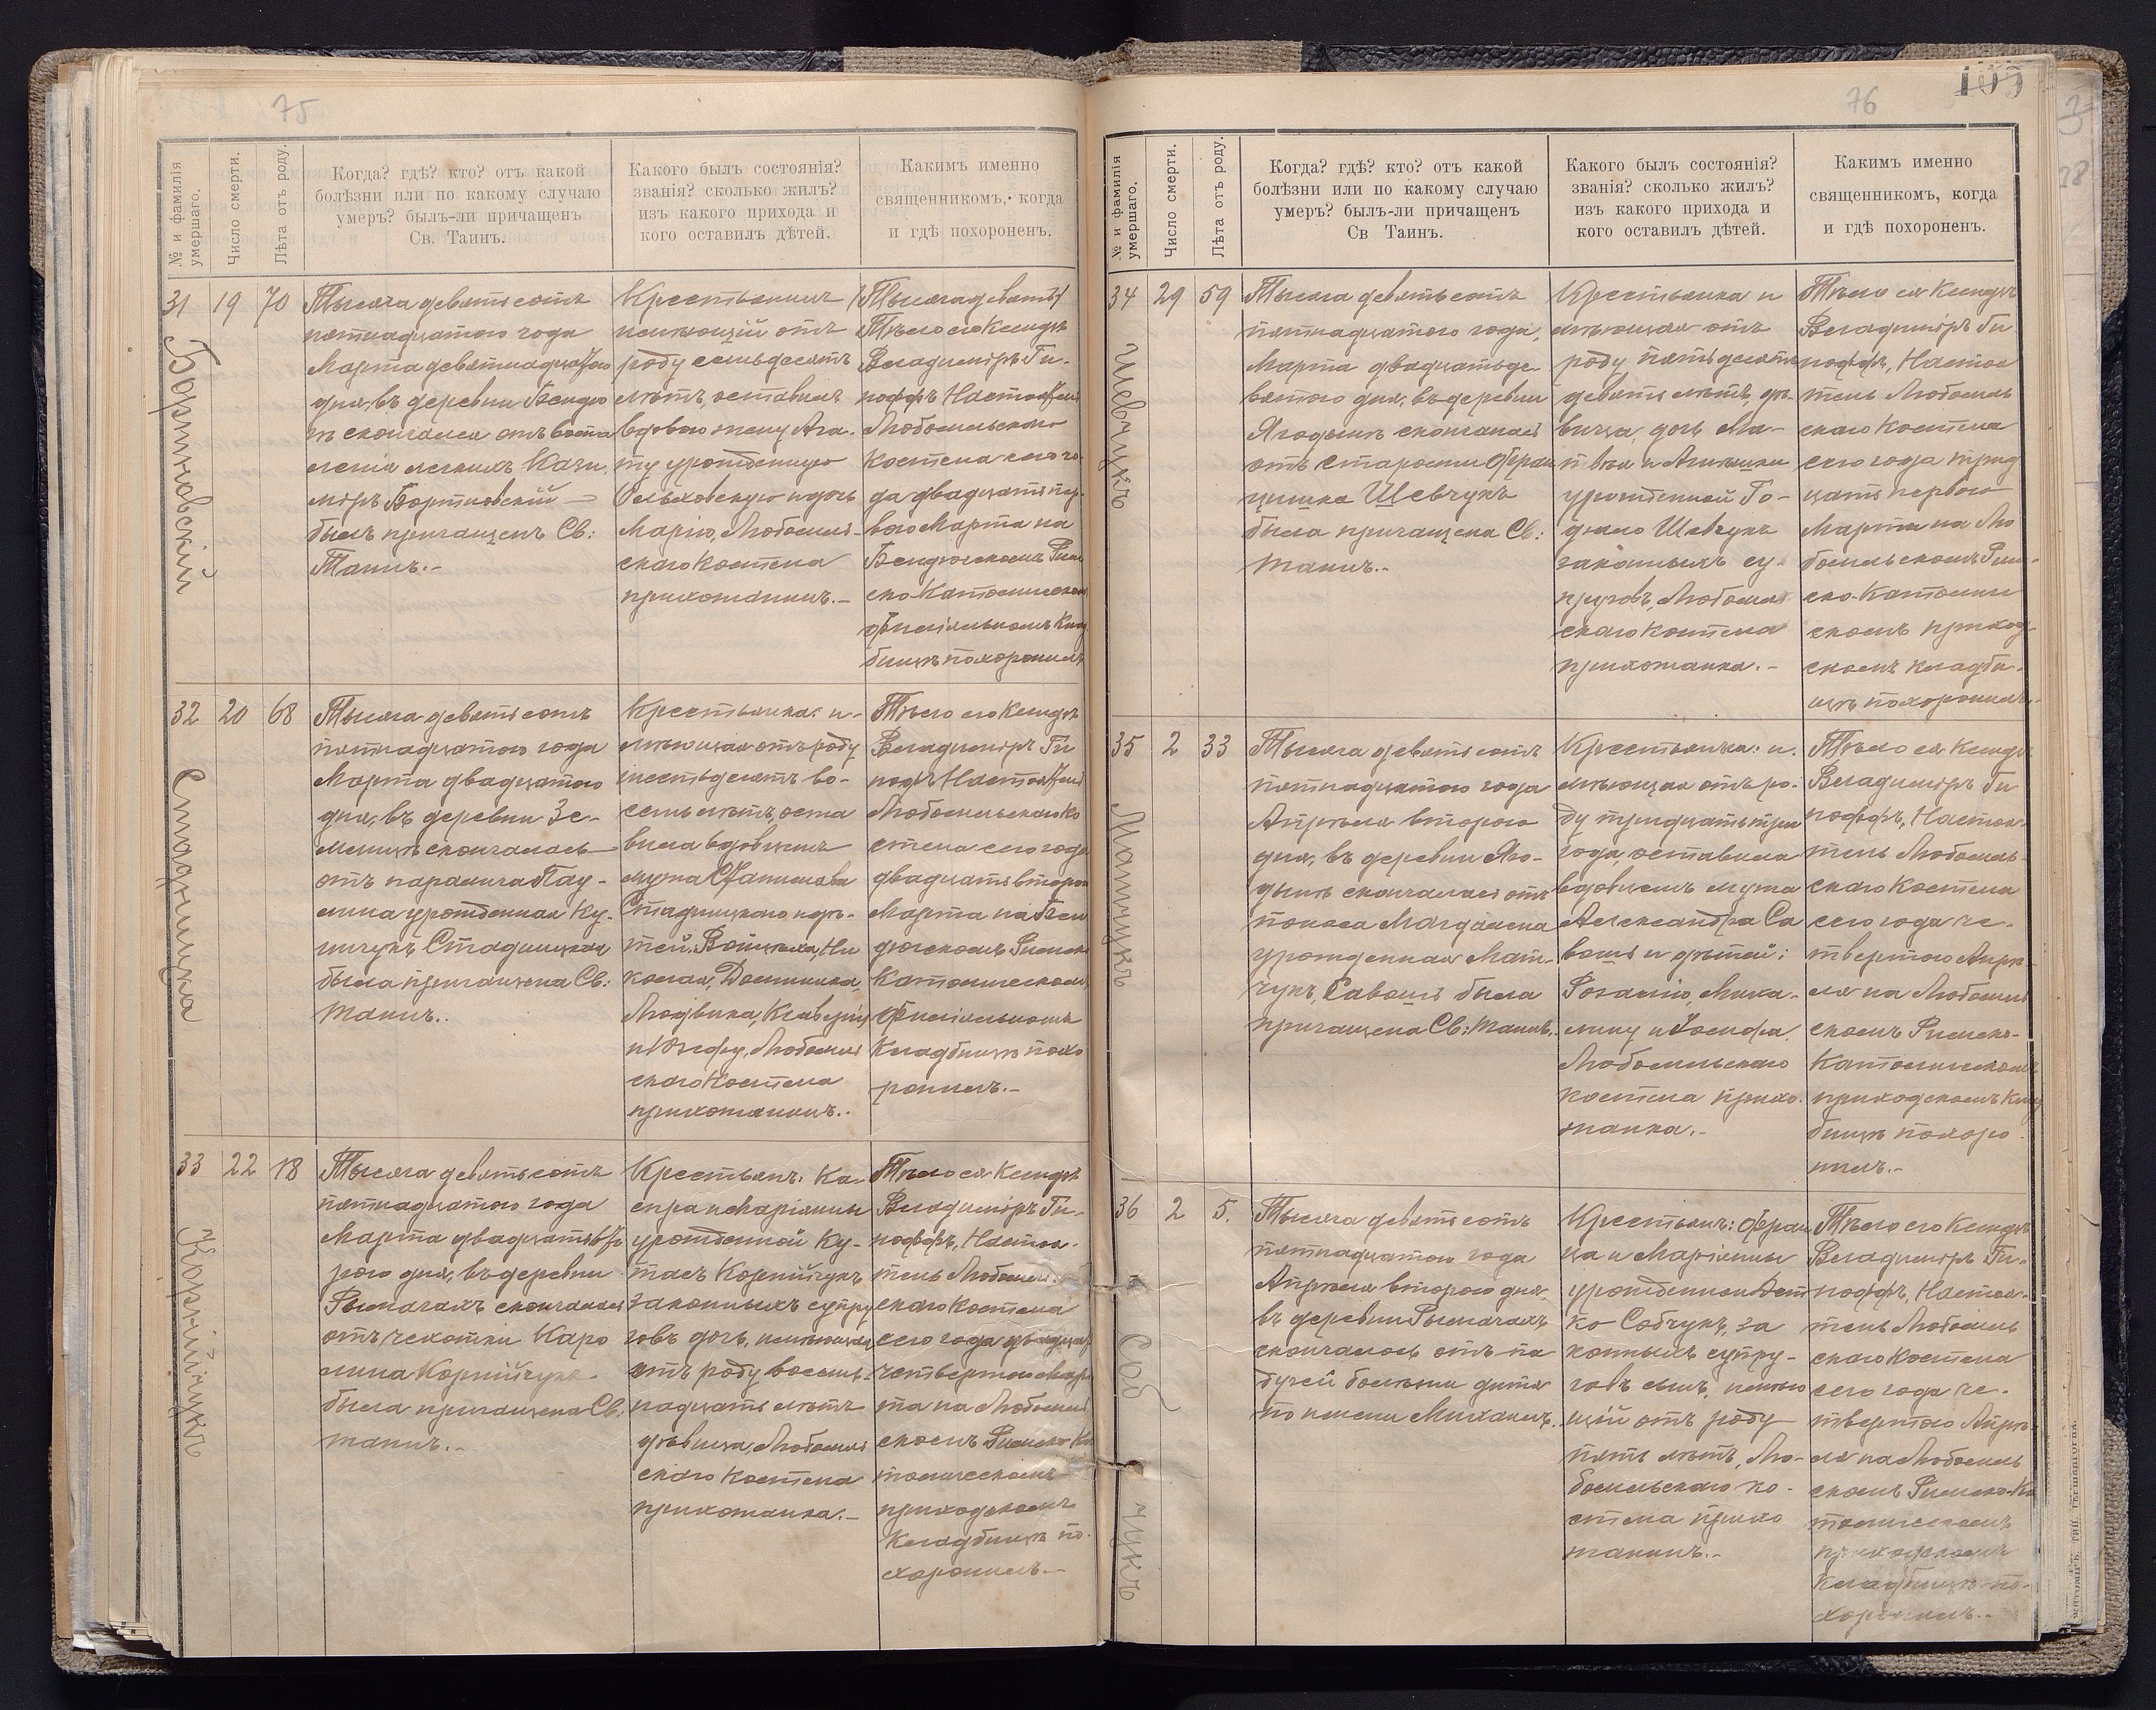 75
№ и фамилія умершаго.
Число смерти.
Лѣта отъ роду.
Когда? гдѣ? кто? отъ какой
болѣзни или по какому случаю
умеръ? былъ-ли причащенъ
Св. Таинъ.
Какого былъ состоянія?
званія? сколько жилъ?
изъ какого прихода и
кого оставилъ дѣтей.
Какимъ именно
священникомъ, когда
и гдѣ похороненъ.
31
Бортновский
19
70
Тысяча девятьсотъ
пятнадцатого года
Марта девятнадцатого
дня, въ деревни Бендю
гѣ скончался отъ воспа
ленія легкихъ Кази
міръ Бортновскій —
былъ причащенъ Св:
Таинъ.-
Крестьянинъ
имѣющій отъ
роду семьдесятъ
лѣтъ, оставилъ
вдовою жену Ага-
ту урожденную
Ольховскую и дочь
Марію, Любомль-
скаго Костела
прихожанинъ.-
(Тысяча девять)
Тѣло его Ксендзъ
Владиміръ Ги-
поффъ Настоятель
Любомльскаго
Костела сего го
да двадцать пер-
вого Марта на
Бендюгскомъ Рим
ско-Католическомъ
филіяльномъ Клад
бищѣ похоронилъ
32
Стадницка
20
68
Тысяча девятьсотъ
пятнадцатого года
Марта двадцатого
дня, въ деревни Зе-
млицѣ скончалась
отъ паралича Пау-
лина урожденная Ку-
ничукъ Стадницкая
была причащена Св:
Таинъ..
Крестьянка: и-
мѣющая отъ роду
шестьдесятъ во-
семь лѣтъ, оста
вила вдовцемъ
мужа Станислава
Стадницкаго и дѣ-
тей: Войцѣха, Ни
колая, Доминика,
Людвика, Клаверія
и Юзефу, Любомль
скаго Костела
прихожанинъ..
Тѣло его Ксендзъ
Владиміръ Ги
пофъ Настоятель
Любомльскаго Ко
стела сего года
двадцать второго
Марта на Бен
дюгскомъ Римско
Католическомъ
Филіяльномъ
Кладбищѣ похо
ронилъ.-
33
Корнійчукъ
22
18
Тысяча девятьсотъ
пятнадцатого года
Марта двадцать вто
рого дня, въ деревни
Рымачахъ скончалась
отъ чехотки Каро
лина Корнійчукъ
была причащена Св:
таинъ.-
Крестьянъ: Ка-
спра и Маріянны
урожденной Ку-
тасъ Корнійчукъ
законныхъ супру
говъ дочь, имѣющая
отъ роду восем-
надцать лѣтъ
дѣвица, Любомль
скаго Костела
прихожанка.-
Тѣло ея Ксендзъ
Владиміръ Ги-
поффъ, Настоя-
тель Любомль
скаго Костела
сего года двадцать
четвертого Мар
та на Любомль
скомъ Римско Ка
толическомъ
приходскомъ
Кладбищѣ по-
хоронилъ.-
76
105
№ и фамилія умершаго.
Число смерти.
Лѣта отъ роду.
Когда? гдѣ? кто? отъ какой
болѣзни или по какому случаю
умеръ? былъ-ли причащенъ
Св Таинъ.
Какого былъ состоянія?
званія? сколько жилъ?
изъ какого прихода и
кого оставилъ дѣтей.
Какимъ именно
священникомъ, когда
и гдѣ похороненъ.
34
Шевчукъ
29
59
Тысяча девятьсотъ
пятнадцатого года,
Марта двадцать де-
вятого дня, въ деревни
Ягодынѣ скончалась
отъ старости Фран
цишка Шевчукъ
была причащена Св:
таинъ.-
Крестьянка и
мѣющая отъ
роду пятьдесятъ
девять лѣтъ, дѣ-
вица, дочь Ма-
твѣя и Агнѣшки
урожденной Го-
дыло Шевчукъ
законныхъ су-
пруговъ, Любомль
скаго Костела
прихожанка.-
Тѣло ея Ксендзъ
Владиміръ Ги
поффъ, Настоя
тель Любомль
скаго Костела
сего года трид
цать первого
Марта на Лю
бомльскомъ Рим-
ско-Католиче
скомъ приход-
скомъ кладби-
щѣ похоронилъ.-
35
Матчукъ
2
33
Тысяча девятьсотъ
пятнадцатого года
Апрѣля второго
дня, въ деревни Яго-
дынѣ скончалась отъ
поноса Магдалена
урожденная Мат-
чукъ, Саволь была
причащена Св: таинъ.-
Крестьянка: и-
мѣющая отъ ро-
ду тридцать три
года, оставила
вдовцемъ мужа
Александра Са
воля и дѣтей:
Розалію, Мика-
лину и Іосифа,
Любомльскаго
костела прихо-
жанка.-
Тѣло ея Ксендзъ
Владиміръ Ги
поффъ, Настоя-
тель Любомль-
скаго Костела
сего года че-
твертого Апрѣ-
ля на Любомль
скомъ Римско-
Католическомъ
приходскомъ Клад
бищѣ похоро-
нилъ.-
36
Соб чукъ
2
5.
Тысяча девятьсотъ
пятнадцатого года
Апрѣля второго дня
въ деревни Рымачахъ
скончалось отъ па
дучей болѣзни дитя
по имени Михаилъ.
Крестьянъ: Фран
ца и Маріянны
урожденной
ко Собчукъ, за
конныхъ супру-
говъ сынъ, имѣю
щій отъ роду
пять лѣтъ, Лю-
бомльскаго ко-
стела прихо
жанинъ.-
Тѣло его Ксендзъ
Владиміръ Ги-
поффъ, Настоя-
тель Любомль
скаго Костела
сего года че-
твертого Апрѣ
ля на Любомль
скомъ Римско-Ка
толическомъ
приходскомъ
Кладбищѣ по-
хоронилъ.-